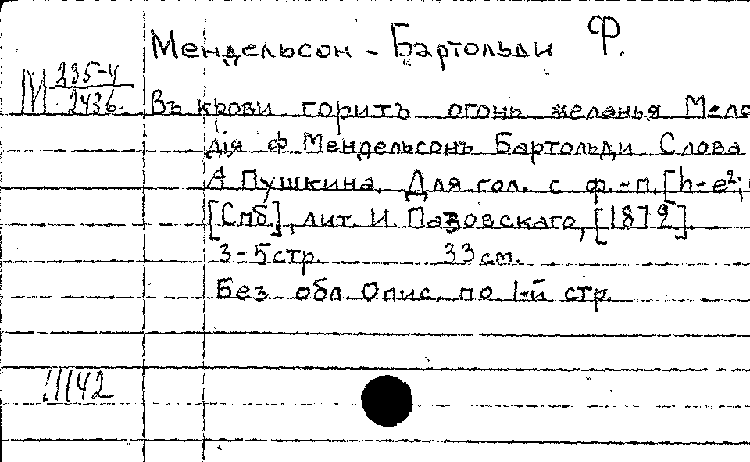 Мендельсон - Бартольди Ф.
М 235-4
2436.
Въ крови горитъ огонь желанья Мело
дія Ф Мендельсонъ Бартольди Слова
А Пушкина. Для гол. с ф.-п. [h-e²;
[Спб.], лит. И Пазовскаго, [1879].
3-5 стр. 33 см.
Без обл Опис. по 1-й стр.
11142